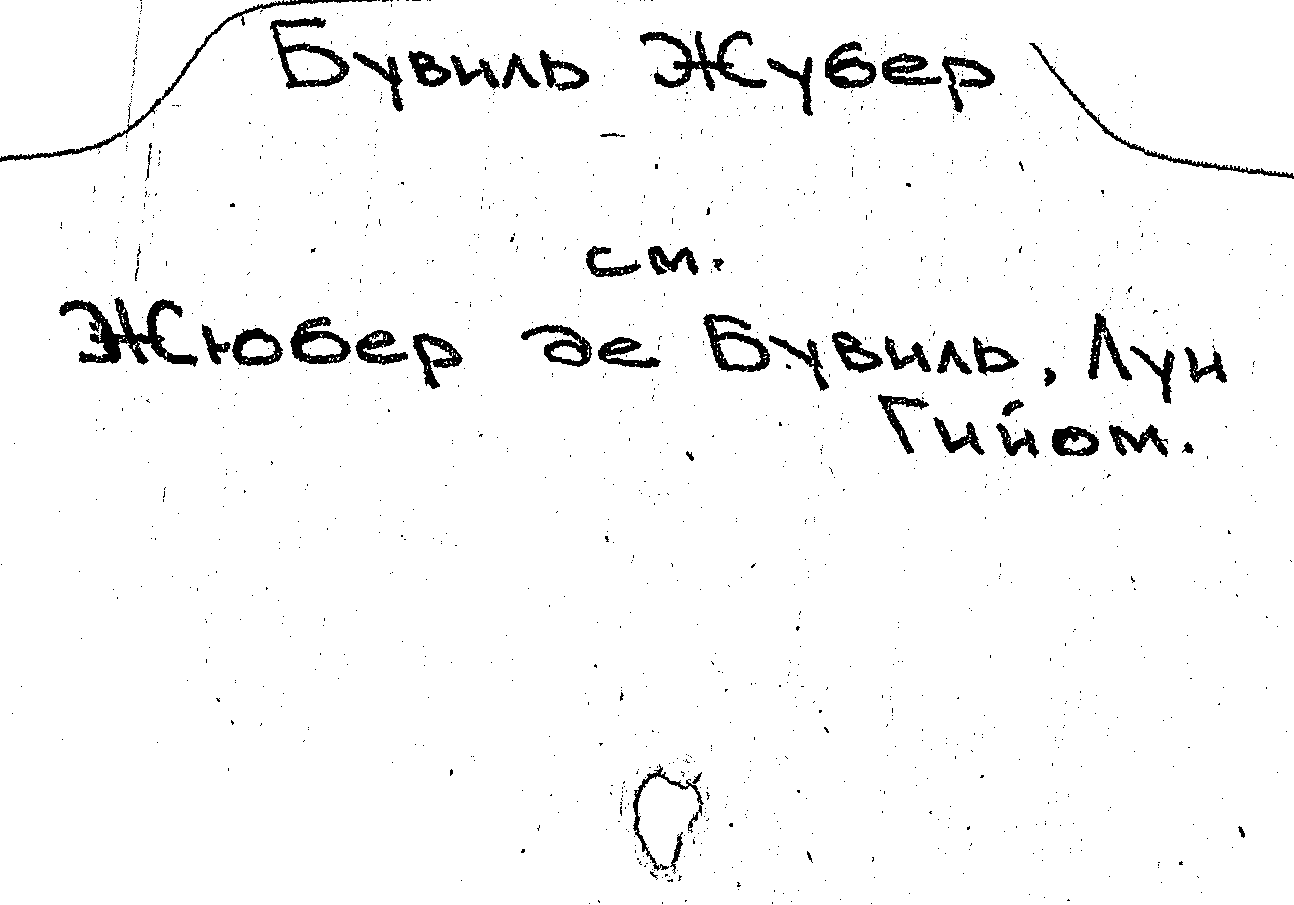 Бувиль Жубер
см.
Жюбер де Бувиль, Луи
Гийом.